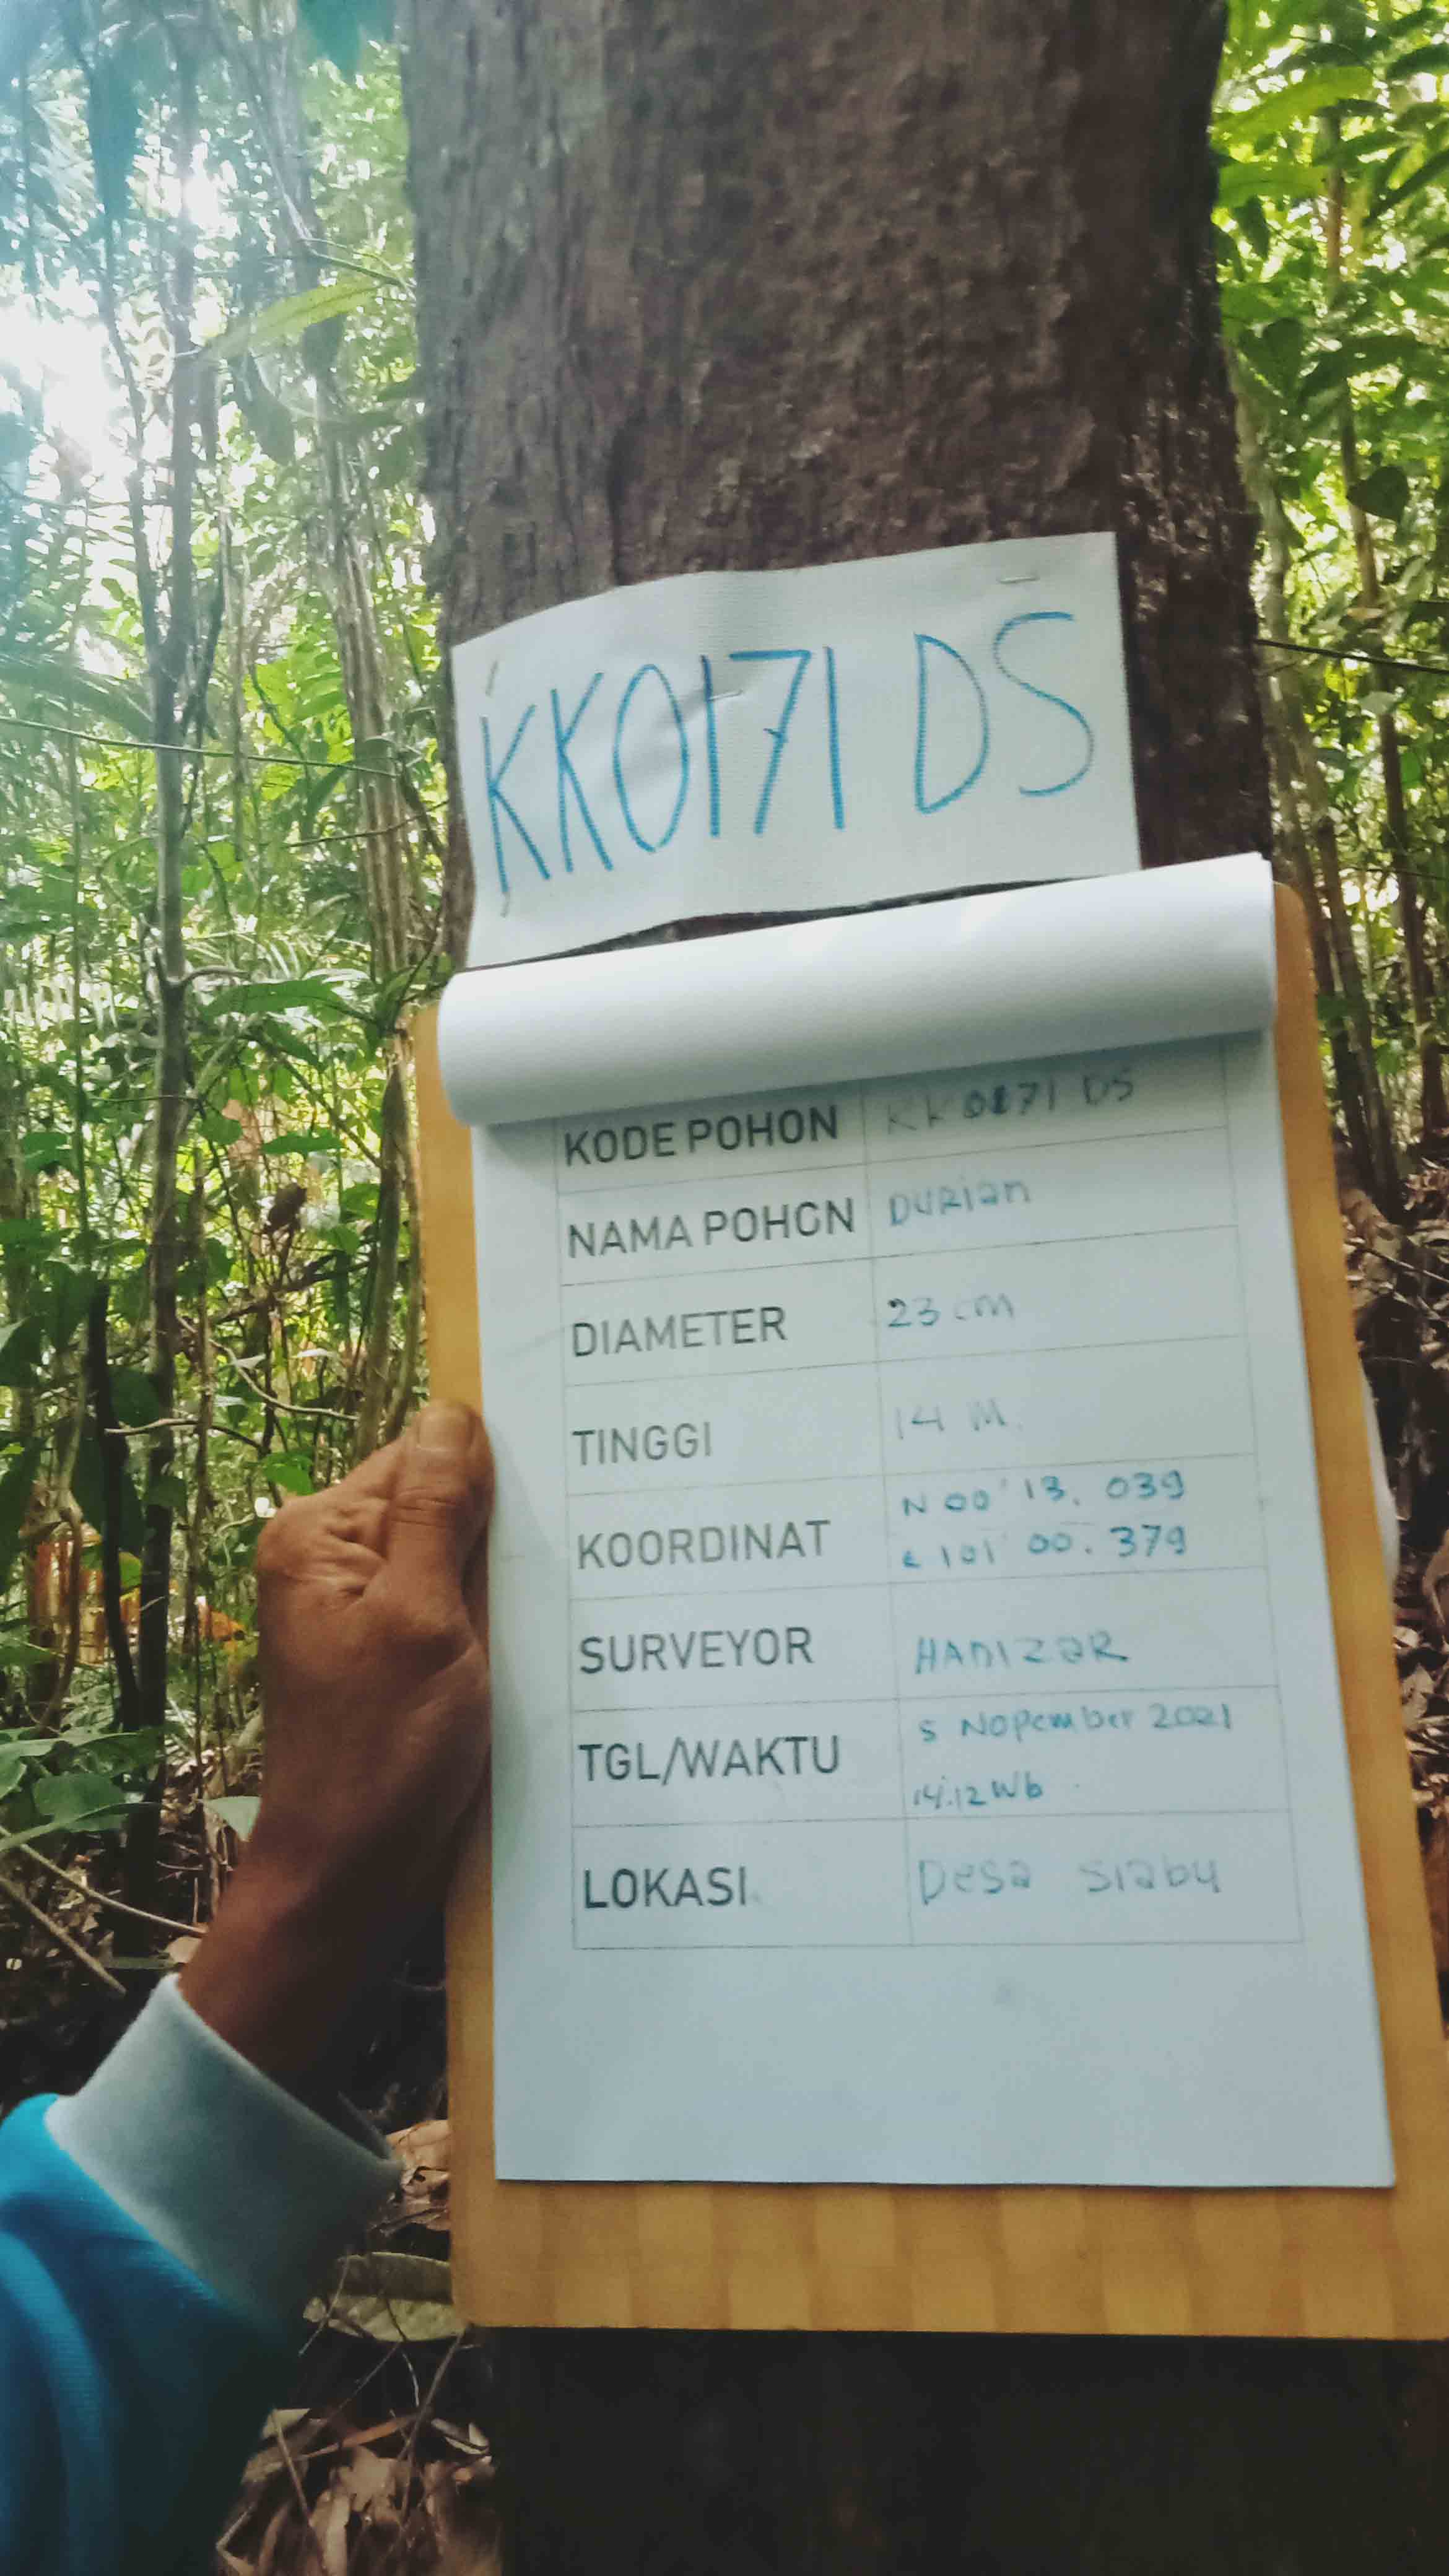 KK0171 DS
KODE POHON KK0171 DS
NAMA POHON Durian
DIAMETER 23 cm
TINGGI 14 M.
KOORDINAT N 00' 13. 039
E 101' 00. 379
SURVEYOR HADIZAR
TGL/WAKTU 5 Nopember 2021
14.12 Wb
LOKASI Desa Siabu